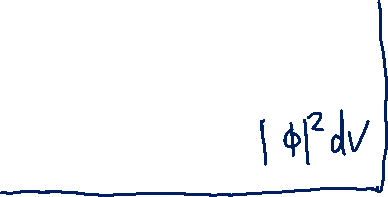 |ϕ|²dV